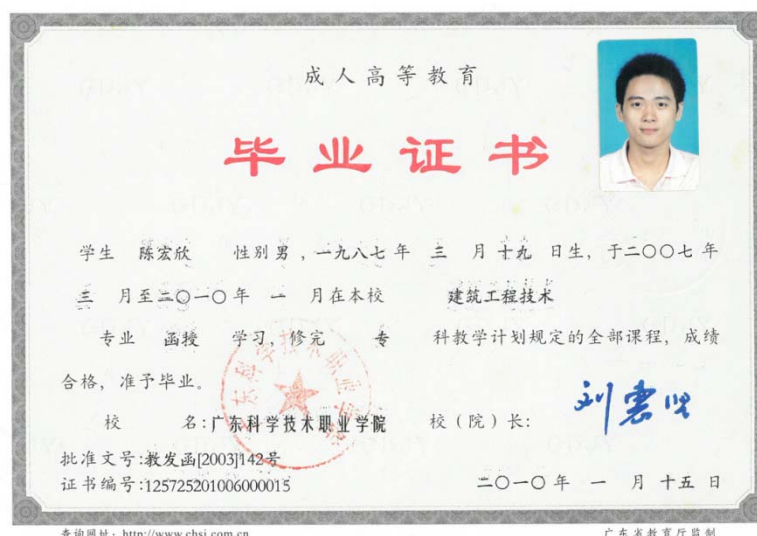 成人高等教育
毕业证书
学生 陈宏欣 性别 男 , 一九八七年 三 月 十九 日生, 于二〇〇七年
三 月至二〇一〇年 一 月在本校 建筑工程技术
专业 函授 学习, 修完 专 科教学计划规定的全部课程, 成绩
合格, 准予毕业。
校 名:广东科学技术职业学院 校(院)长:
批准文号:教发函[2003]142号
证书编号:125725201006000015 二〇一〇年 一 月 十五 日
查询网址: http://www.chsi.com.cn 广东省教育厅监制